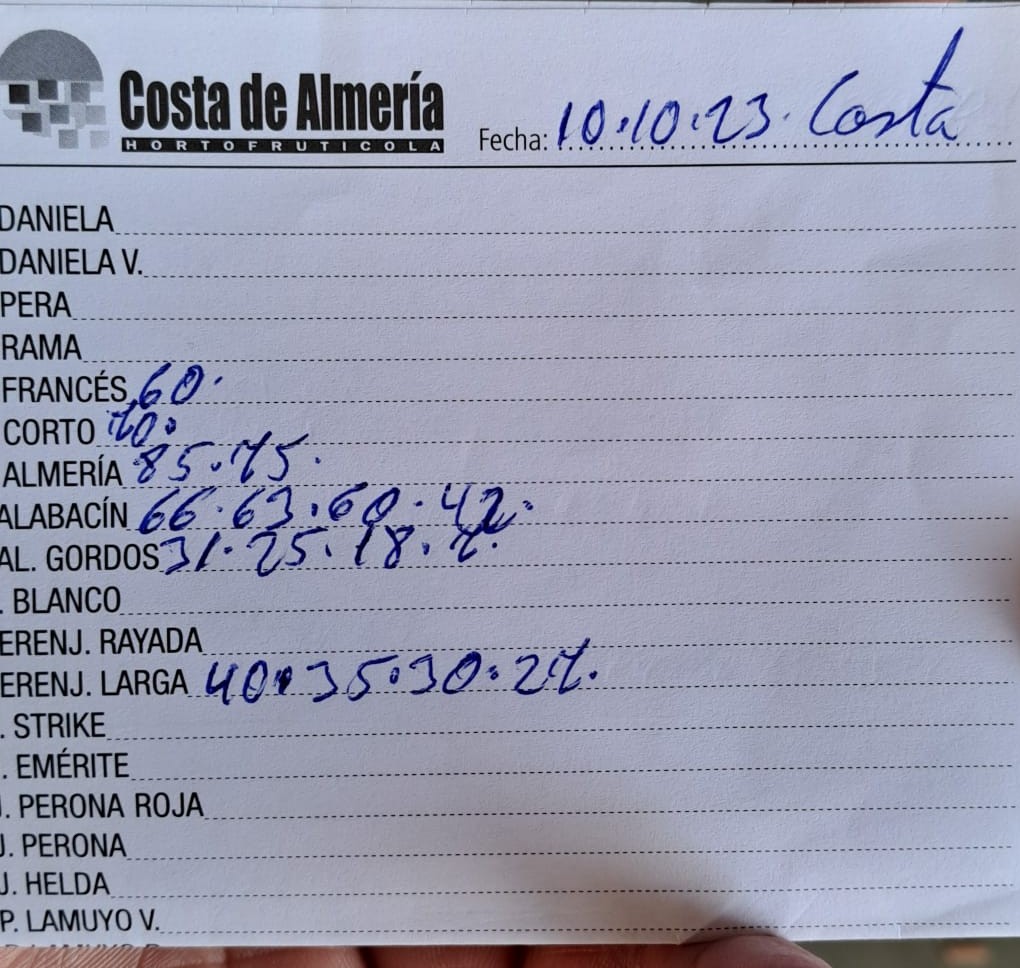 Costa de Almería
HORTOFRUTICOLA
Fecha: 10.10.23. Costa
DANIELA
DANIELA V.
PERA
RAMA
FRANCÉS 60.
CORTO 70.
ALMERÍA 85.75.
ALABACÍN 66.63.60.42.
AL. GORDOS 31.25.18.7.
. BLANCO
ERENJ. RAYADA
ERENJ. LARGA 40.35.30.27.
. STRIKE
. EMÉRITE
J. PERONA ROJA
J. PERONA
J. HELDA
P. LAMUYO V.